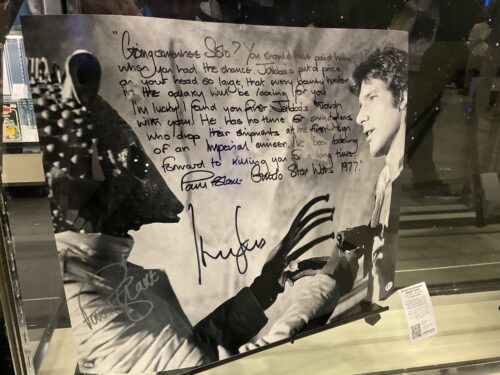 "Going somewhere Solo? You should have paid him
when you had the chance. Jabba's put a price
on your head so large that every bounty hunter
in the galaxy will be looking for you
I'm lucky I found you first Jabba's through
with you! He has no time for smugglers
who drop their shipments at the first sign
of an Imperial cruiser. I've been looking
forward to killing you for a long time
Paul Blake Greedo Star Wars 1977."
Paul Blake